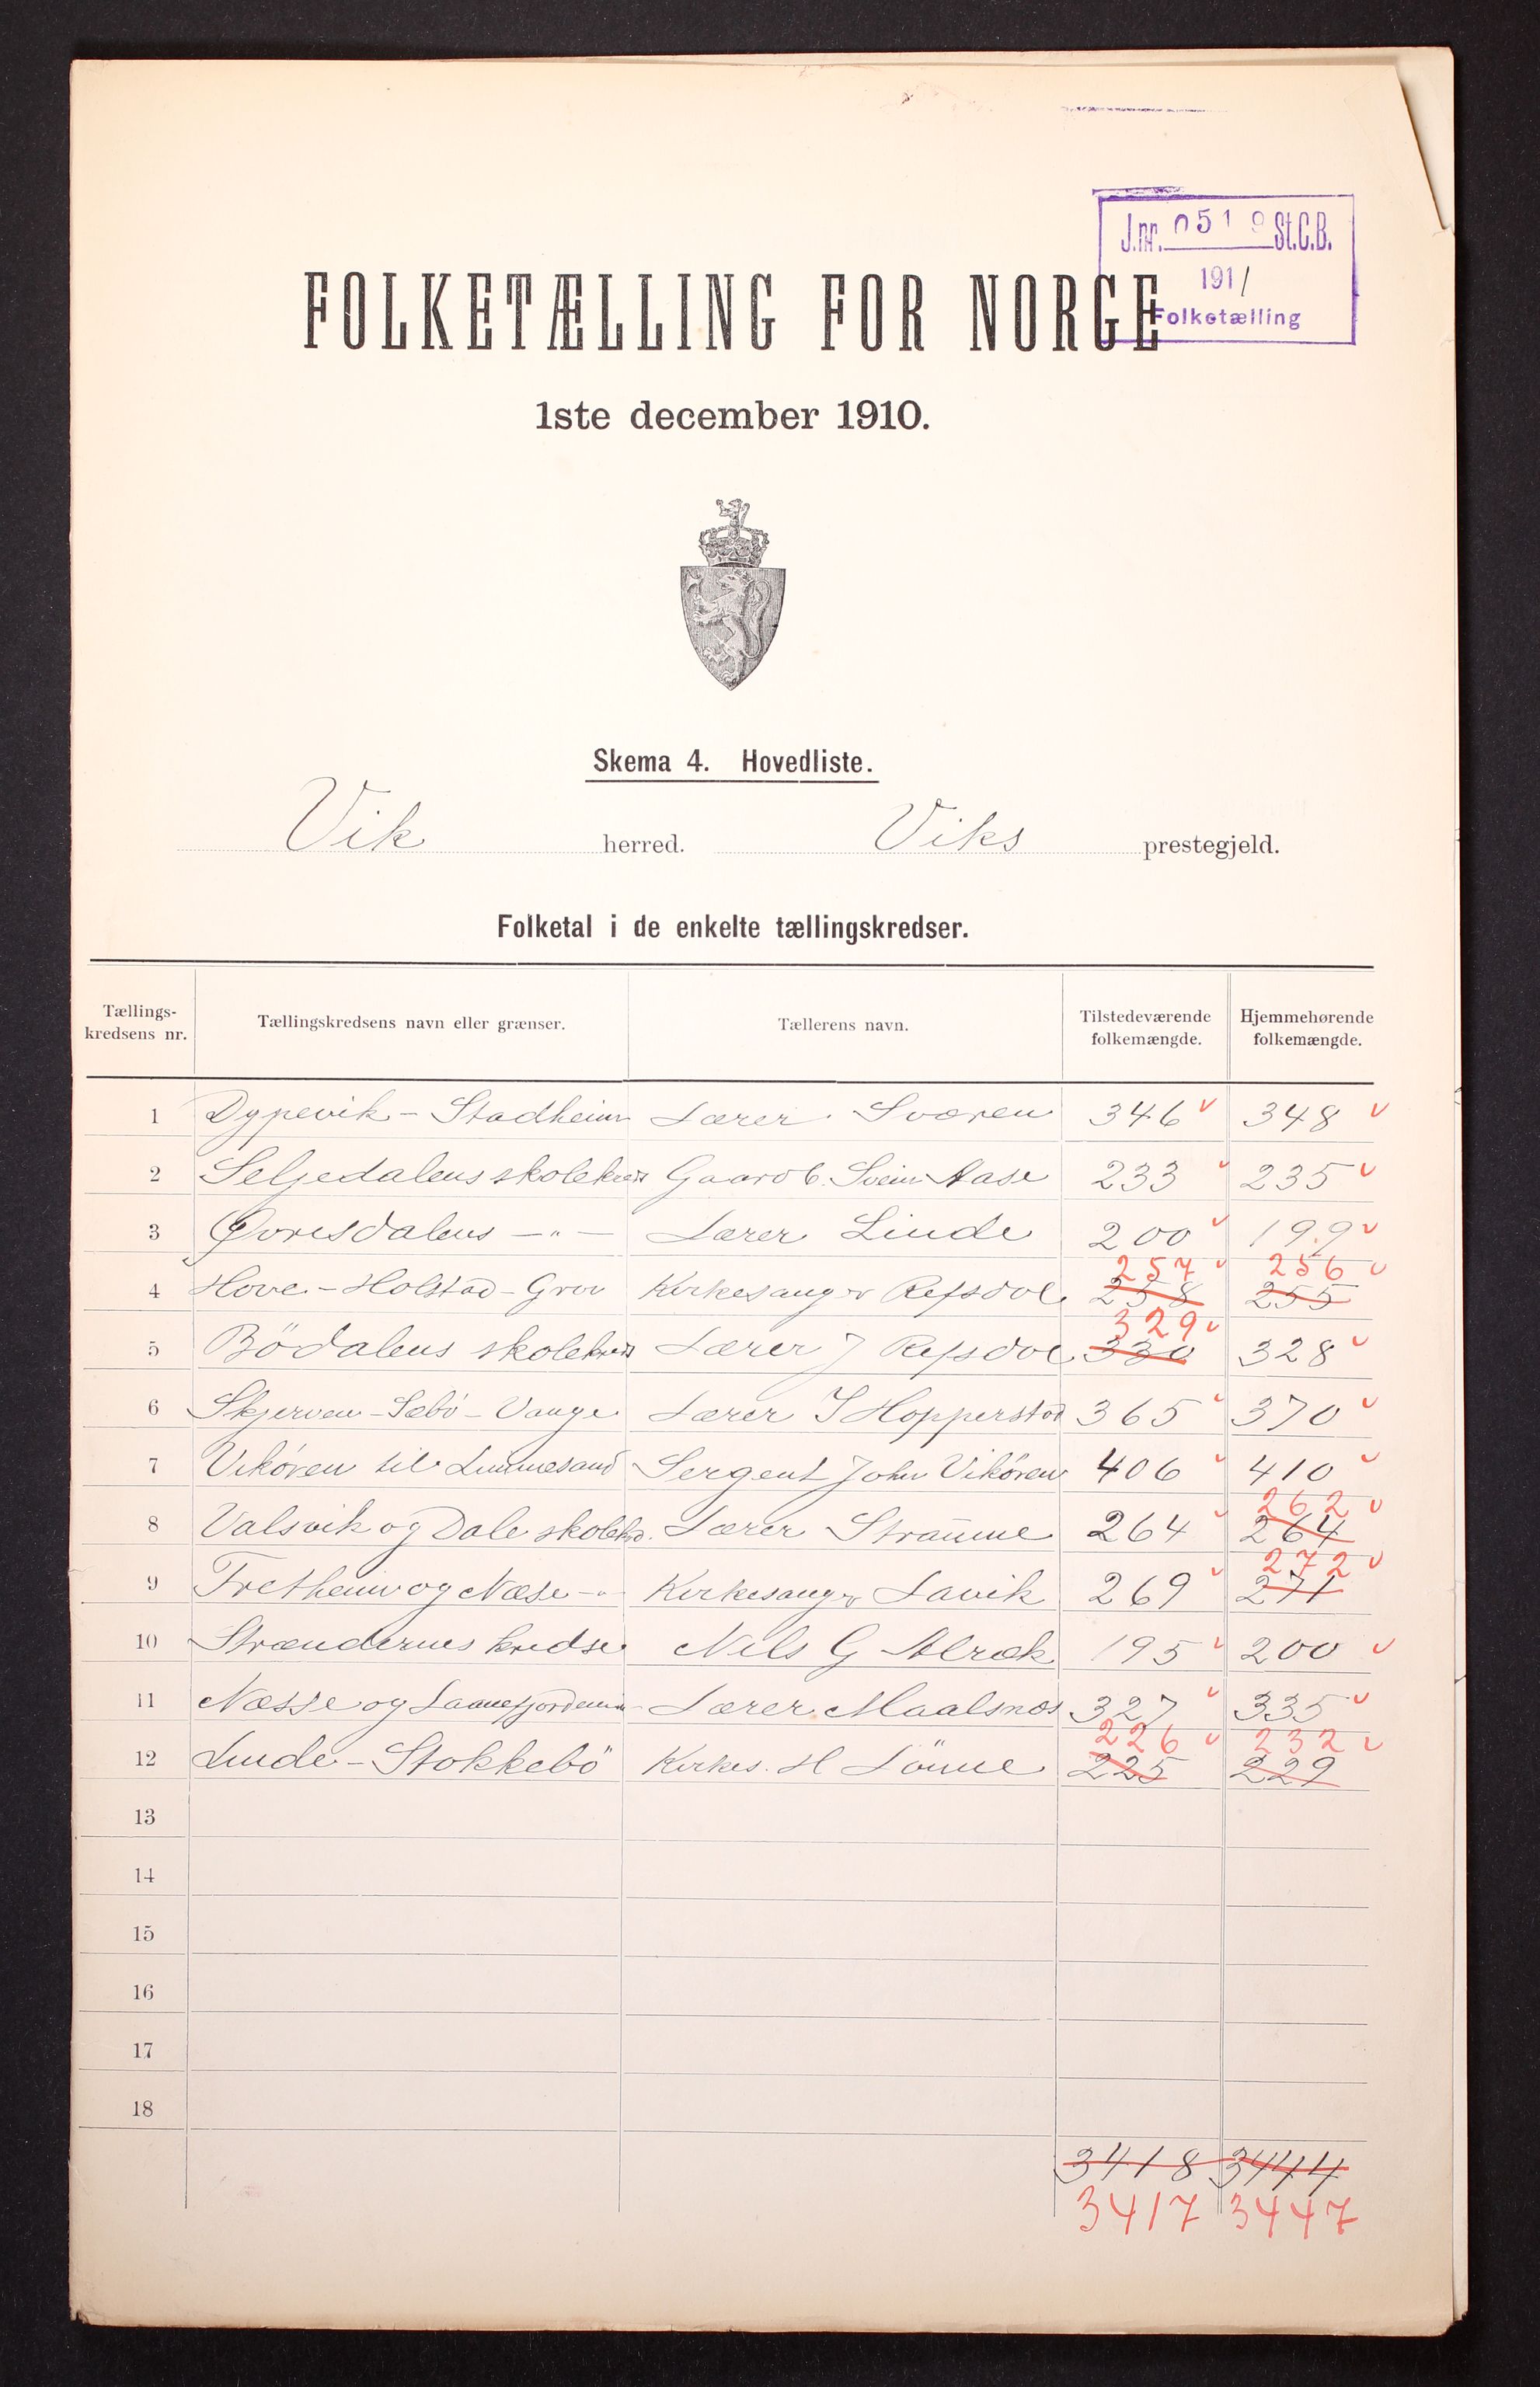 J.nr. 0519 St.C.B.
1911
Folketælling
FOLKETÆLLING FOR NORGE
1ste december 1910.
Skema 4. Hovedliste.
Vik herred. Viks prestegjeld.
Folketal i de enkelte tællingskredser.
Tællingskredsens nr. Tællingskredsens navn eller grænser. Tællerens navn. Tilstedeværende folkemængde. Hjemmehørende folkemængde.
1 Dypevik - Stadheim Lærer Sværen 346 348
2 Seljedalens skolekreds Gaardb. Svein Aase 233 235
3 Øvresdalens - " - Lærer Linde 200 199
257 256
4 Hove - Holstad - Grov Kirkesanger Refsdal 258 255
329
5 Bödalens skolekreds Lærer J Refsdal 330 328
6 Skjerven - Sæbö - Vange Lærer I Hopperstad 365 370
7 Vikören til Limmesand Sergent John Vikören 406 410
262
8 Valsvik og Dale skolekrd. Lærer Strømme 264 264
272
9 Tretheim og Næse - " - Kirkesanger Lavik 269 271
10 Strændernes kredse Nils G Alræk 195 200
11 Næsse og Lærer Maalsnæs 327 335
226 232
12 Linde - Stokkebö Kirkes. H Lönne 225 229
13
14
15
16
17
18
3418 3444
3417 3447